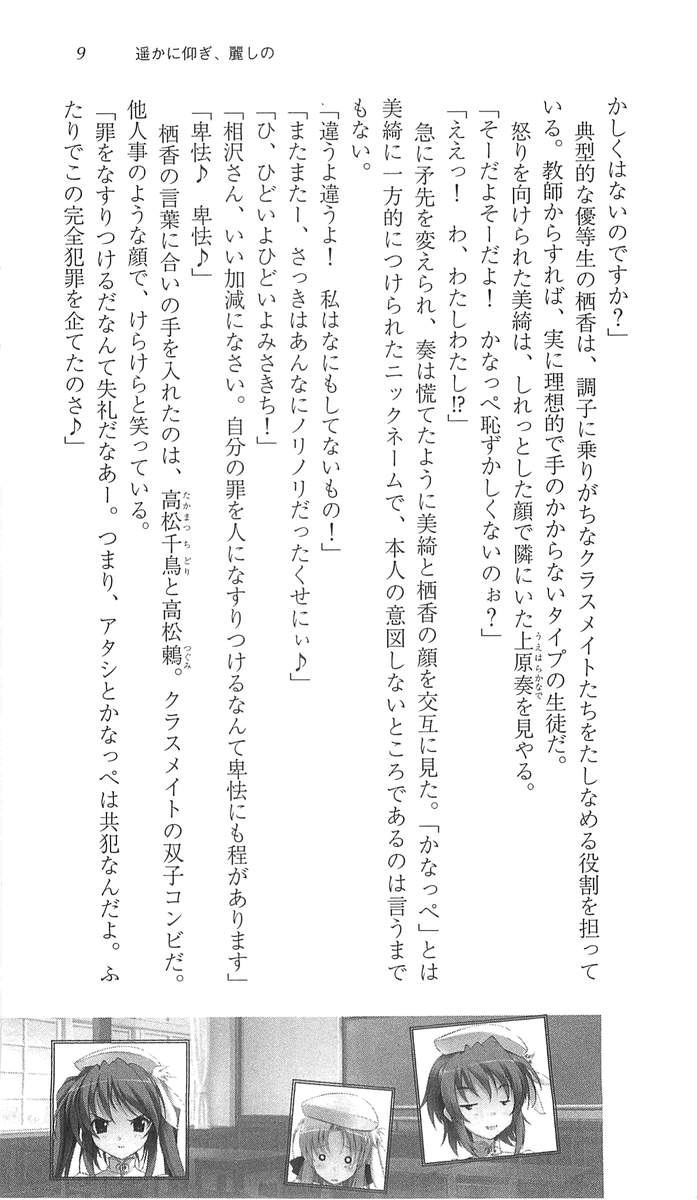 9　遥かに仰ぎ、麗しの
かしくはないのですか？」
　典型的な優等生の栖香は、調子に乗りがちなクラスメイトたちをたしなめる役割を担って
いる。教師からすれば、実に理想的で手のかからないタイプの生徒だ。
　怒りを向けられた美綺は、しれっとした顔で隣にいた上原奏を見やる。
うえはらかなで
「そーだよそーだよ！　かなっぺ恥ずかしくないのぉ？」
「ええっ！　わ、わたしわたし!?」
　急に矛先を変えられ、奏は慌てたように美綺と栖香の顔を交互に見た。「かなっぺ」とは
美綺に一方的につけられたニックネームで、本人の意図しないところであるのは言うまで
もない。
「違うよ違うよ！　私はなにもしてないもの！」
「またまたー、さっきはあんなにノリノリだったくせにぃ♪」
「ひ、ひどいよひどいよみさきち！」
「相沢さん、いい加減になさい。自分の罪を人になすりつけるなんて卑怯にも程があります」
「卑怯♪　卑怯♪」
　栖香の言葉に合いの手を入れたのは、高松千鳥と高松鶫。クラスメイトの双子コンビだ。
たかまつちどり　つぐみ
他人事のような顔で、けらけらと笑っている。
「罪をなすりつけるだなんて失礼だなあー。つまり、アタシとかなっぺは共犯なんだよ。ふ
たりでこの完全犯罪を企てたのさ♪」